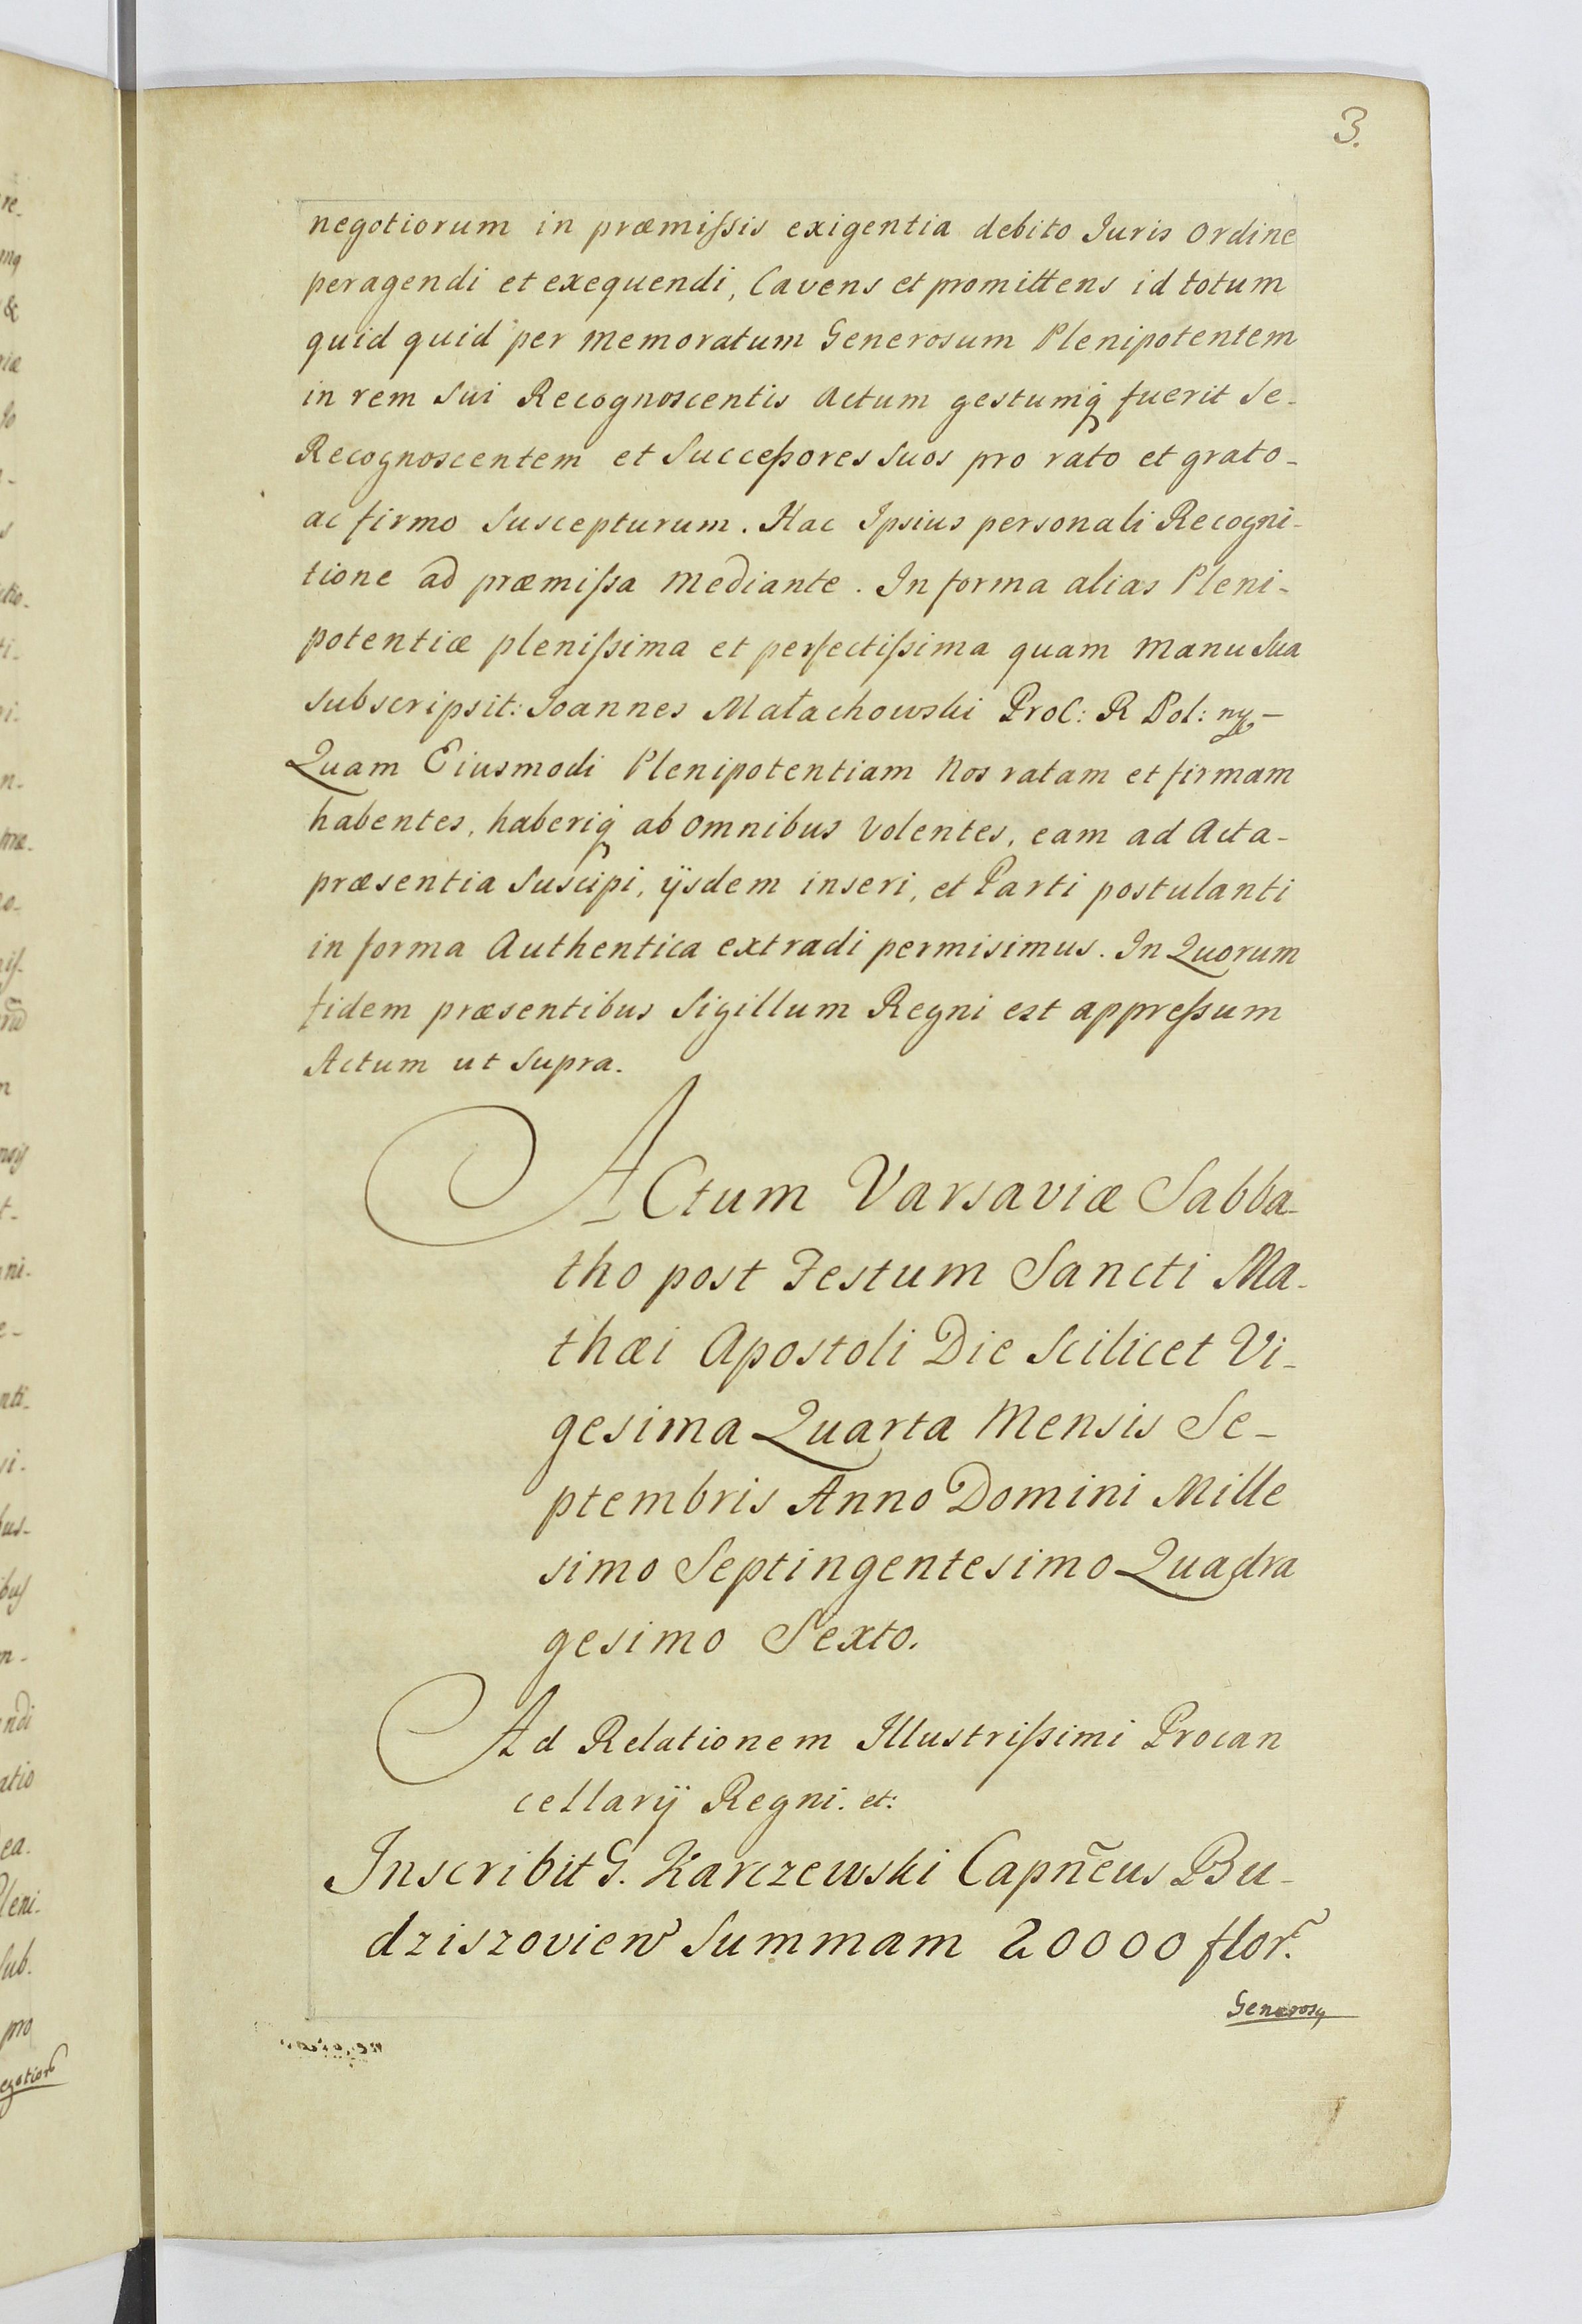 3.
negotiorum in præmißsis exigentia debito Iuris ordine
peragendi et exequendi, Cavens et promittens id totum
quid quid per memoratum Generosum Plenipotentem
in rem Sui Recognoscentis actum gestumq fuerit Se-
Recognoscentem et Succeßores Suos pro rato et grato-
ac firmo Suscepturum. Hac Ipsius personali Recogni-
tione ad præmißa mediante. In forma alias Pleni-
potentiæ plenißima et perfectißima quam manu Sua
Subscripsit: Joannes Małachowski ProC: R Pol:
Quam Eiusmodi Plenipotentiam Nos ratam et firmam
habentes, haberiq ab omnibus volentes, eam ad Acta-
præsentia Suscipi, ijsdem inseri, et Parti postulanti
in forma Authentica extradi permisimus. In Quorum
fidem præsentibus Sigillum Regni est appreßum
Actum ut Supra.
ACtum Varsaviæ Sabba-
tho post Festum Sancti Ma-
thæi Apostoli Die Scilicet Vi-
gesima Quarta Mensis Se-
ptembris Anno Domini Mille
simo Septingentesimo Quadra
gesimo Sexto.
Ad Relationem Illustrißimi Procan
cellarij Regni. et:
Inscribit G. Karczewski Capñeus Bu-
dziszovien Summam 20000 flor.